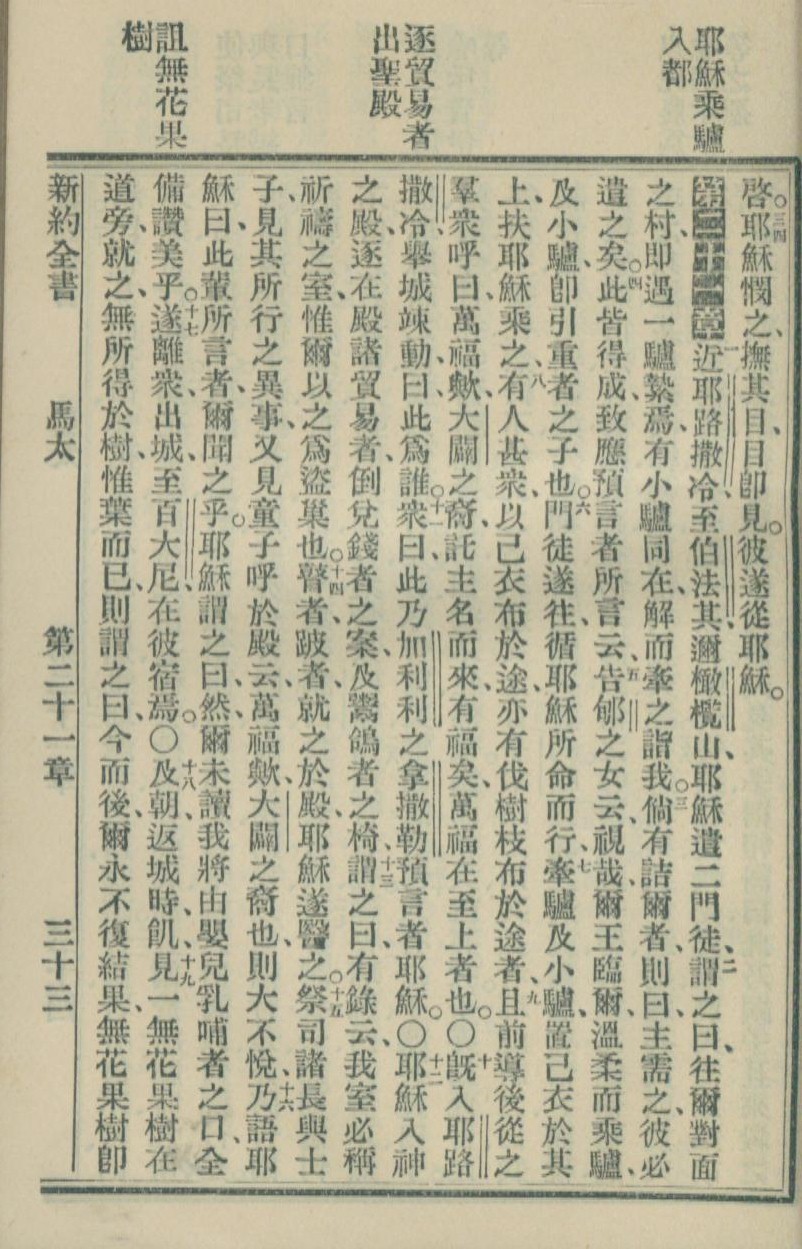 耶穌乘驢
入都
逐貿易者
出聖殿
詛無花果
樹
啓。三四耶穌憫之、撫其目、目卽見。彼遂從耶穌。
第二十一章 一近耶路撒冷、至伯法其、邇橄欖山、耶穌遣二門徒、二謂之曰、往爾對面
之村、卽遇一驢縶焉、有小驢同在、解而牽之詣我。三倘有詰爾者、則曰、主需之、彼必
遣之矣。四此皆得成、致應預言者所言云、五告郇之女云、視哉、爾王臨爾、溫柔而乘驢、
及小驢、卽引重者之子也。六門徒遂往、循耶穌所命而行、七牽驢及小驢、置己衣於其
上、扶耶穌乘之、八有人甚衆、以己衣布於途、亦有伐樹枝布於途者、九且前導後從之
羣衆呼曰、萬福歟、大闢之裔、託主名而來、有福矣、萬福在至上者也。〇十旣入耶路
撒冷、舉城竦動、曰、此爲誰。十一衆曰、此乃加利利之拿撒勒預言者耶穌。〇十二耶穌入神
之殿、逐在殿諸貿易者、倒兌錢者之案、及鬻鴿者之椅、十三謂之曰、有錄云、我室必稱
祈禱之室、惟爾以之爲盜巢也。十四瞽者、跛者、就之於殿、耶穌遂醫之。十五祭司諸長與士
子、見其所行之異事、又見童子呼於殿云、萬福歟、大闢之裔也、則大不悅、十六乃語耶
穌曰、此輩所言者、爾聞之乎。耶穌謂之曰、然、爾未讀我將由嬰兒乳哺者之口、全
備讚美乎。十七遂離衆出城、至百大尼、在彼宿焉。〇十八及朝、返城時、飢、十九見一無花果樹在
道旁、就之、無所得於樹、惟葉而已、則謂之曰、今而後、爾永不復結果、無花果樹卽
新約全書 馬太 第二十一章 三十三